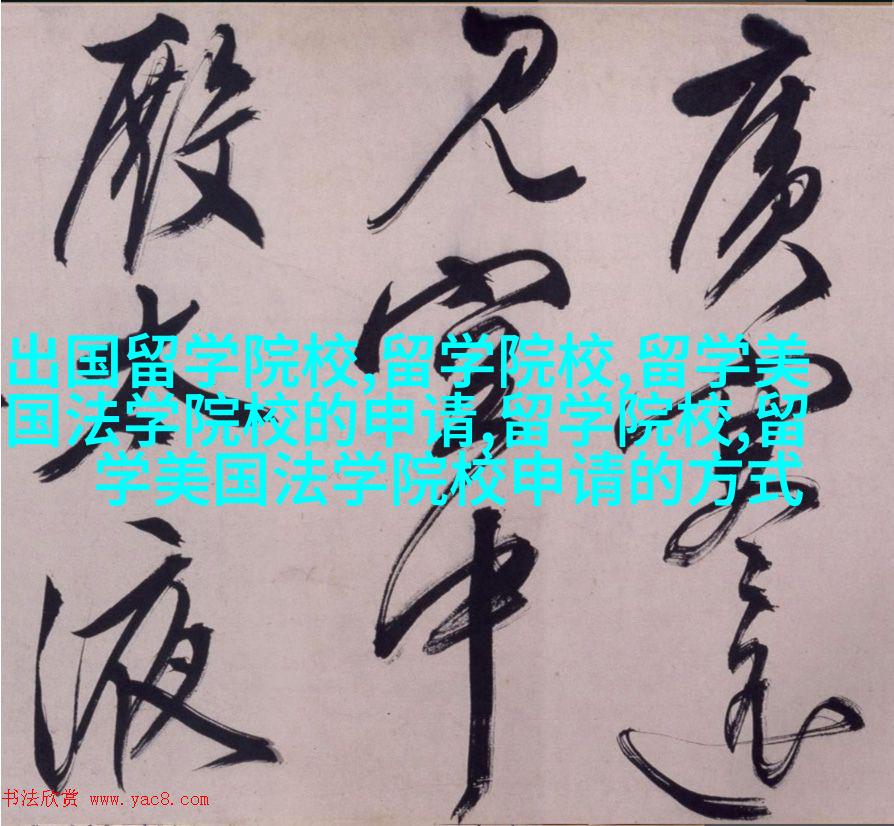 廣
見中
殿太液
出国留学院校,留学院校,留学美
国法学院校的申请,留学院校,留
学美国法学院校申请的方式
书法欣赏 www.yac8.com